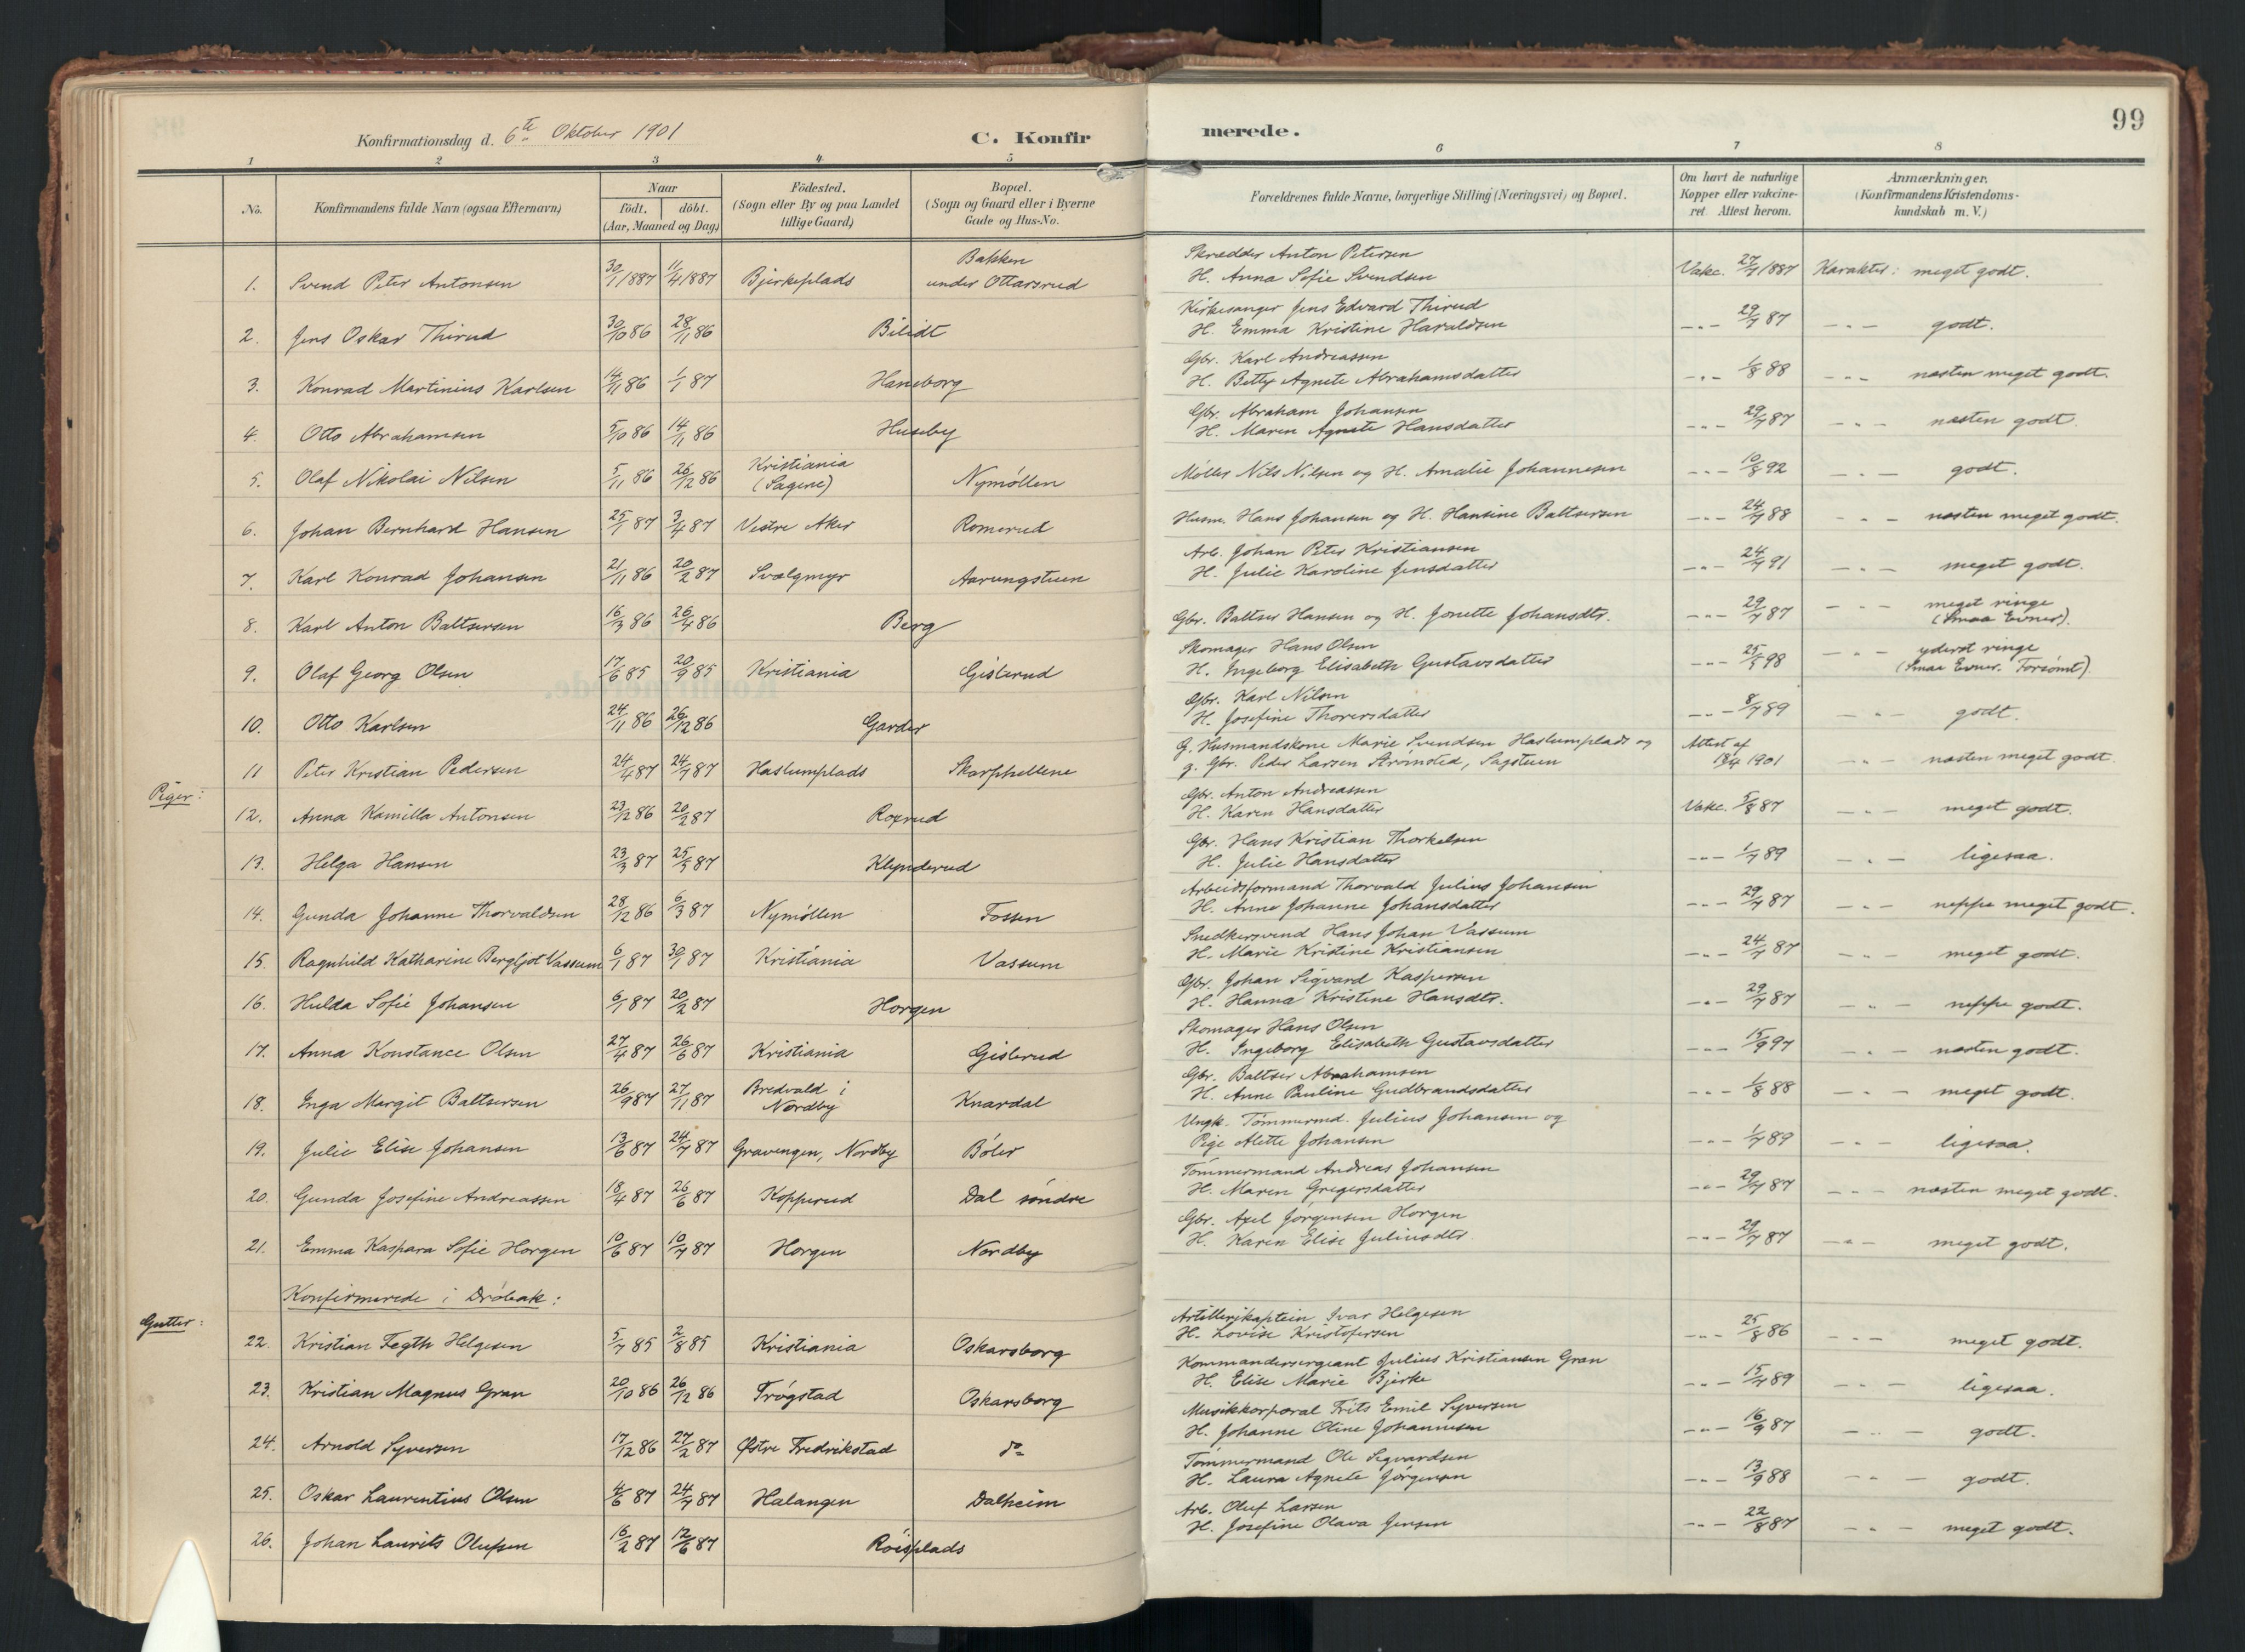 99
Konfirmationsdag d. 6te Oktober 1901
C. Konfirmerede.
1 2 3 4 5 6 7 8
No. | Konfirmandens fulde Navn (ogsaa Efternavn) | Naar født. | døbt. (Aar, Maaned og Dag) | Födested. (Sogn eller By og paa Landet tillige Gaard) | Bopæl. (Sogn og Gaard eller i Byerne Gade og Hus-No. | Forældrenes fulde Navne, borgerlige Stilling (Næringsvei) og Bopæl. | Om havt de naturlige Kopper eller vakcineret. Attest herom. | Anmærkninger. (Konfirmandens Kristendomskundskab m. V.)
1. Svend Peter Antonsen 30/1 1887 11/4 1887 Bjerkeplads Bakken under Ottarsrud Skrædder Anton Petersen H. Anna Sofie Svendsen Vakc. 27/7 1887 Karakter: meget godt.
2. Jens Oskar Thirud 30/10 86 28/11 86 Bilidt Kirkesanger Jens Edvard Thirud H. Emma Kristine Haraldsen -"- 29/7 87 -"- godt.
3. Konrad Martinius Karlsen 14/11 86 1/1 87 Haneborg Gbr. Karl Andreassen H. Betty Agnete Abrahamsdatter -"- 1/8 88 -"- næsten meget godt.
4. Otto Abrahamsen 5/10 86 14/11 86 Huseby Gbr. Abraham Johansen H. Maren Agnete Hansdatter -"- 29/7 87 -"- næsten godt.
5. Olaf Nikolai Nilsen 5/11 86 26/12 86 Kristiania (Sagene) Nymöllen Møller Nils Nilsen og H. Amalie Johannesen -"- 10/8 92 -"- godt.
6. Johan Bernhard Hansen 25/1 87 3/4 87 Vestre Aker Romerud Husm. Hans Johansen og H. Hansine Baltsersen -"- 24/7 88 -"- næsten meget godt.
7. Karl Konrad Johansen 21/11 86 20/2 87 Svælgmyr Aarungstuen Arb. Johan Peter Kristiansen H. Julie Karoline Jensdatter -"- 24/7 91 -"- meget godt.
8. Karl Anton Baltsersen 16/3 86 26/4 86 Berg Gbr. Baltser Hansen og H. Jonette Johansdtr. -"- 29/7 87 -"- meget ringe (Smaa Evner).
9. Olaf Georg Olsen 17/6 85 20/9 85 Kristiania Gislerud Skomager Hans Olsen H. Ingeborg Elisabeth Gustavsdatter -"- 25/5 98 -"- yderst ringe (Smaa Evner. Forsömt).
10. Otto Karlsen 24/11 86 26/12 86 Garder Gbr. Karl Nilsen H. Josefine Thorersdatter -"- 8/7 89 -"- godt.
11 Peter Kristian Pedersen 24/4 87 24/7 87 Haslumplads Skorphellene G. Husmandskone Marie Svendsen Haslumplads og g. Gbr. Peder Larsen Strömsted, Sagstuen Attest af 18/4 1901 -"- næsten meget godt.
Piger:
12. Anna Kamilla Antonsen 23/12 86 20/2 87 Roxrud Gbr. Anton Andreassen H. Karen Hansdatter Vakc. 5/8 87 -"- meget godt.
13. Helga Hansen 23/3 87 25/5 87 Klynderud Gbr. Hans Kristian Thorkelsen H. Julie Hansdatter -"- 1/7 89 -"- ligesaa.
14. Gunda Johanne Thorvaldsen 28/12 86 6/3 87 Nymöllen Fossen Arbeidsformand Thorvald Julius Johansen H. Anne Johanne Johansdatter -"- 29/7 87 -"- neppe meget godt.
15. Ragnhild Katharine Bergljot Vassum 6/1 87 30/1 87 Kristiania Vassum Snedkersvend Hans Johan Vassum H. Marie Kristine Kristiansen -"- 24/7 87 -"- meget godt.
16. Hulda Sofie Johansen 6/1 87 20/2 87 Horgen Gbr. Johan Sigvard Kaspersen H. Hanna Kristine Hansdtr. -"- 29/7 87 -"- neppe godt.
17. Anna Konstance Olsen 27/4 87 26/6 87 Kristiania Gislerud Skomager Hans Olsen H. Ingeborg Elisabeth Gustavsdatter -"- 15/9 97 -"- næsten godt.
18. Inga Margit Baltsersen 26/9 87 27/11 87 Bredvald i Nordby Knardal Gbr. Baltser Abrahamsen H. Anne Pauline Gudbrandsdatter -"- 1/8 88 -"- meget godt.
19. Julie Elise Johansen 13/6 87 24/7 87 Gravengen, Nordby Böler Ungk. Tömmermd. Julius Johansen og Pige Alette Johansen -"- 1/7 89 -"- ligesaa.
20. Gunda Josefine Andreassen 18/4 87 26/6 87 Kopperud Dal söndre Tömmermand Andreas Johansen H. Maren Gregersdatter -"- 29/7 87 -"- næsten meget godt.
21. Emma Kaspara Sofie Horgen 10/6 87 10/7 87 Horgen Nordby Gbr. Axel Jörgensen Horgen H. Karen Elise Juliusdtr -"- 29/7 87 -"- meget godt.
Konfirmerede i Dröbak:
Gutter:
22. Kristian Tegth Helgesen 5/7 85 2/8 85 Kristiania Oskarsborg Artillerikaptein Ivar Helgesen H. Lovise Kristofersen -"- 25/8 86 -"- meget godt.
23. Kristian Magnus Gran 20/10 86 26/12 86 Trögstad Oskarsborg Kommandersergeant Julius Kristiansen Gran H. Elise Marie Bjerke -"- 15/7 89 -"- ligesaa.
24. Arnold Syversen 17/12 86 27/2 87 Østre Fredrikstad do Musikkorporal Frits Emil Syversen H. Johanne Oline Johannesen -"- 16/9 87 -"- godt.
25. Oskar Laurentius Olsen 4/6 87 24/7 87 Halangen Dalheim Tömmermand Ole Sigvardsen H. Laura Agnete Jörgensen -"- 13/9 88 -"- godt.
26. Johan Laurits Olufsen 16/2 87 12/6 87 Röisplads Arb. Oluf Larsen H. Josefine Olava Jensen -"- 22/8 87 -"- meget godt.